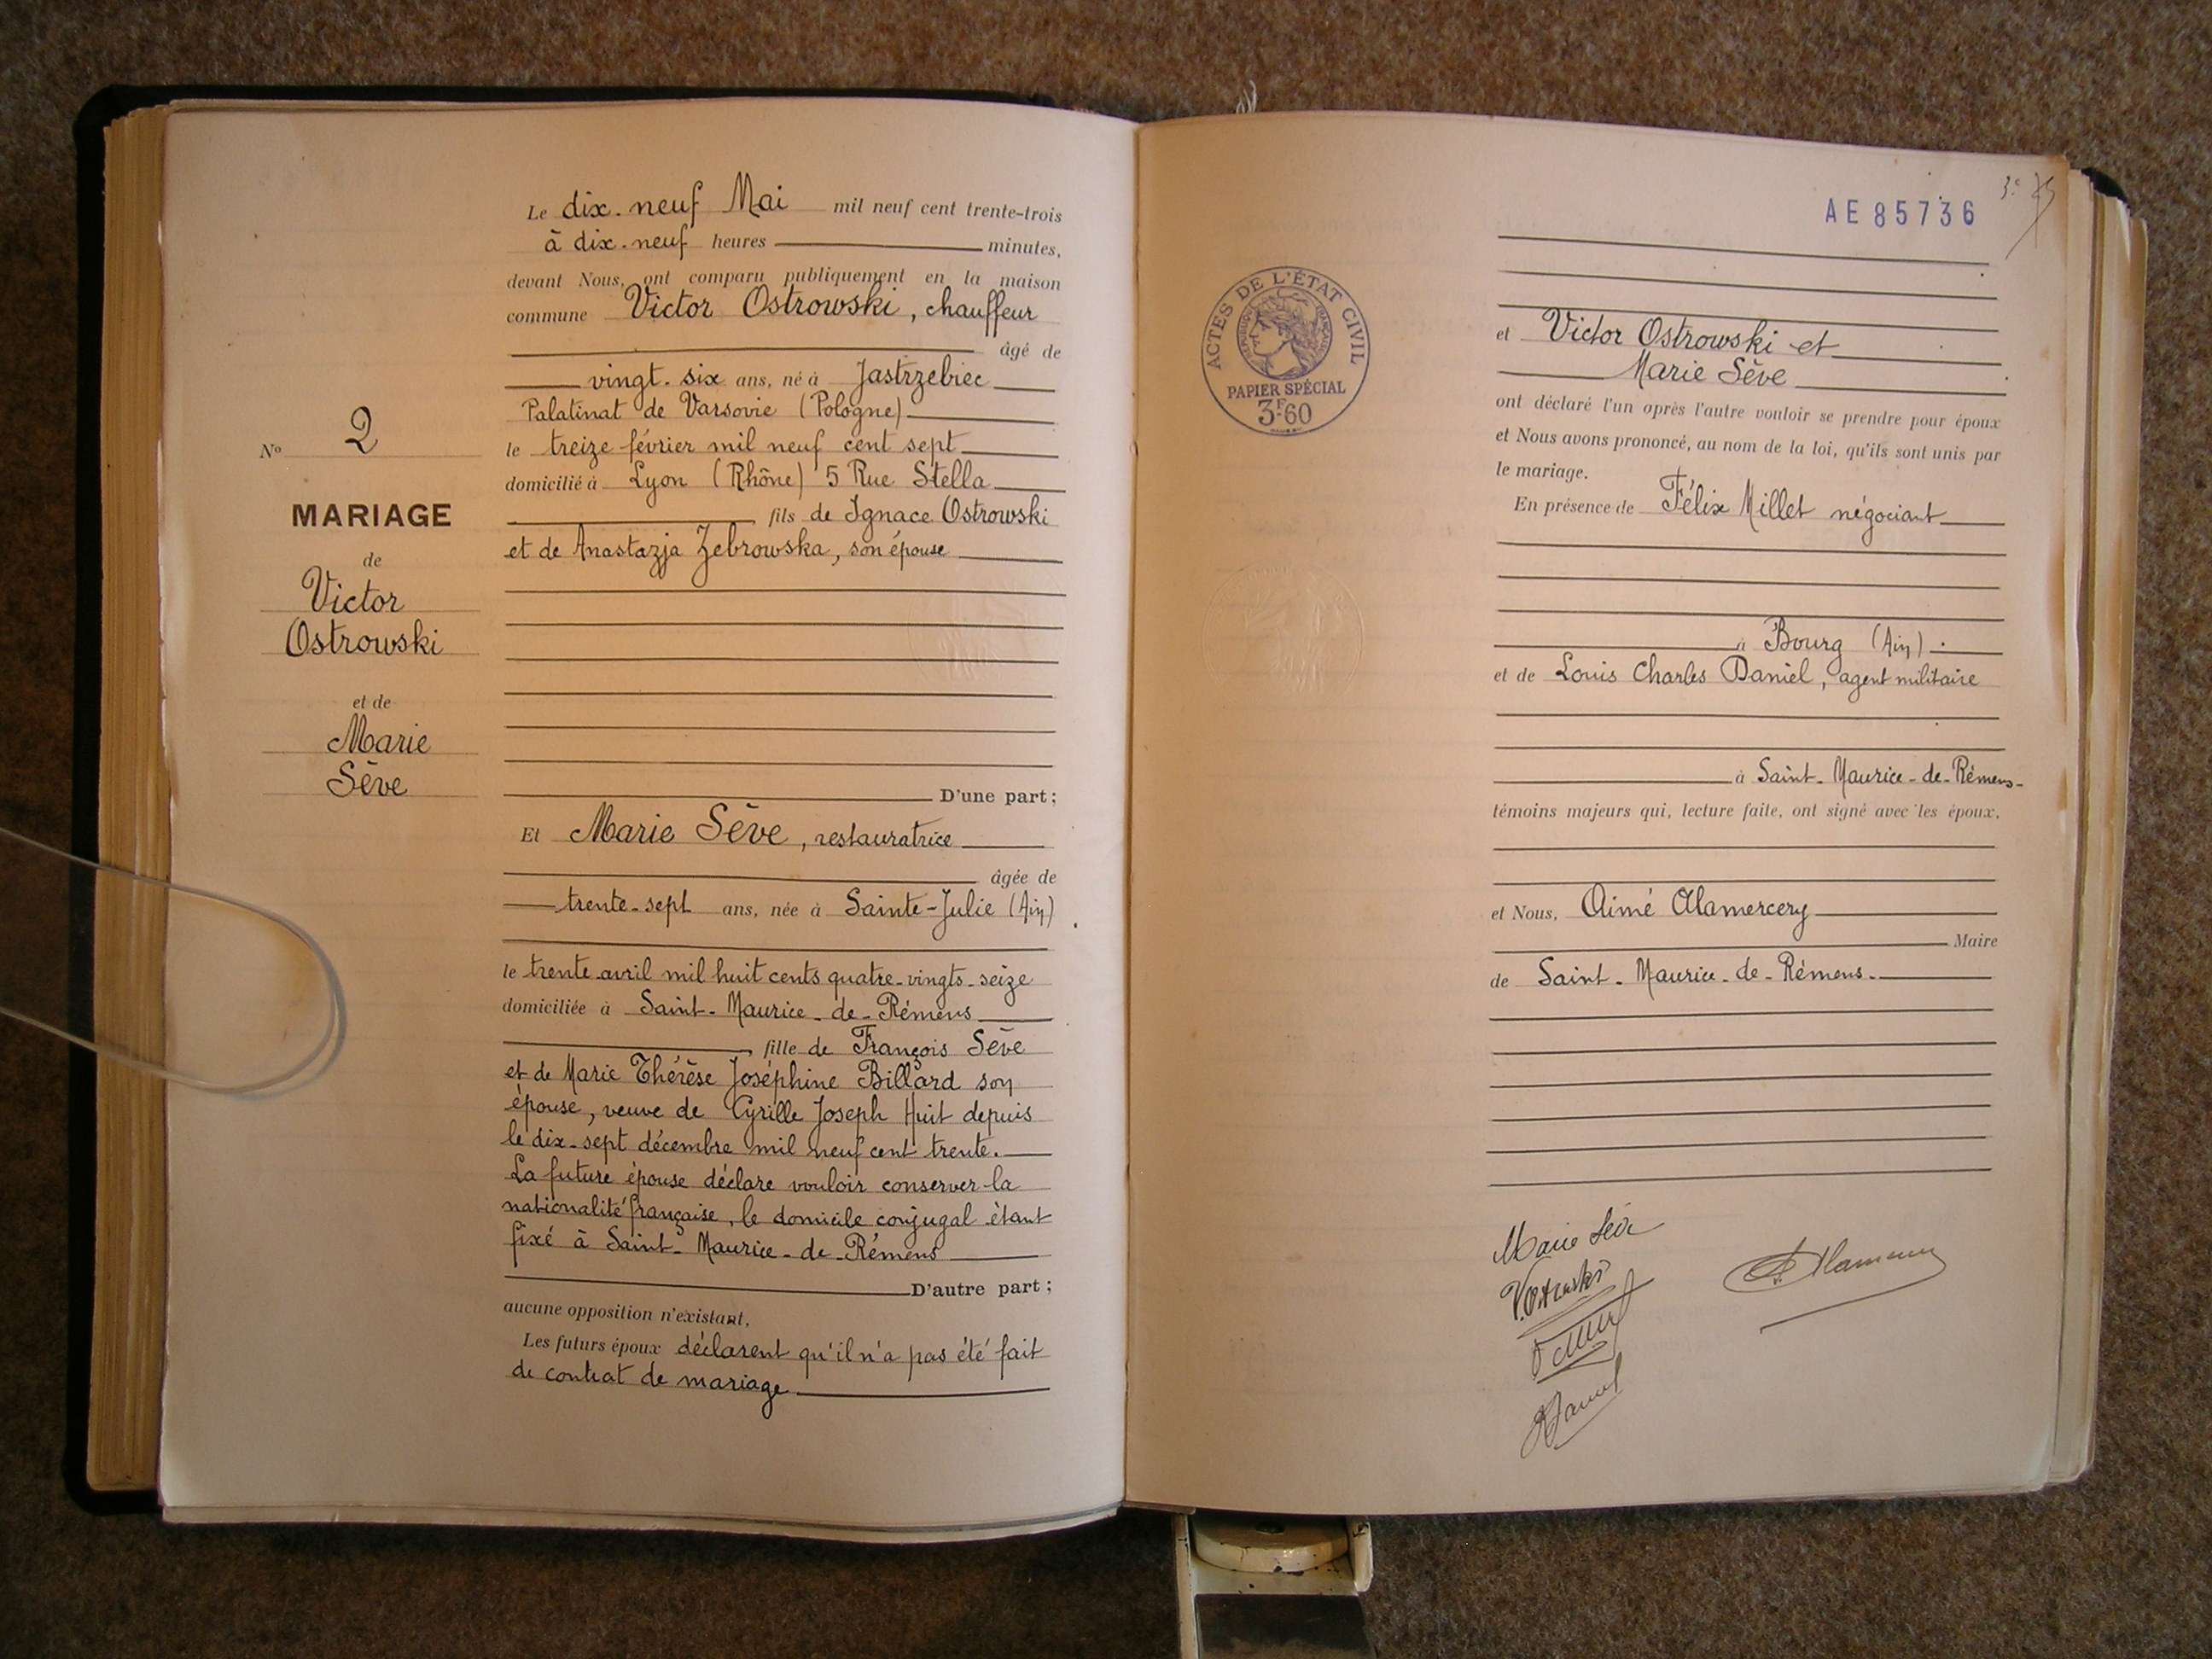 Le dix-neuf Mai mil neuf cent trente-trois
à dix-neuf heures minutes,
devant Nous, ont comparu publiquement en la maison
commune Victor Ostrowski, chauffeur
âgé de
vingt-six ans, né à Jastrzebiec
Palatinat de Varsovie (Pologne)
le treize février mil neuf cent sept
domicilié à Lyon (Rhône) 5 Rue Stella
fils de Ignace Ostrowski
et de Anastazja Zebrowska, son épouse
D'une part;
Et Marie Sève, restauratrice
âgée de
trente-sept ans, née à Sainte-Julie (Ain)
le trente avril mil huit cents quatre-vingts-seize
domiciliée à Saint-Maurice-de-Rémens
fille de François Sève
et de Marie Thérèse Joséphine Billard son
épouse, veuve de Cyrille Joseph Huit depuis
le dix-sept décembre mil neuf cent trente.
La future épouse déclare vouloir conserver la
nationalité française, le domicile conjugal étant
fixé à Saint-Maurice-de-Rémens
D'autre part;
aucune opposition n'existant,
Les futurs époux déclarent qu'il n'a pas été fait
de contrat de mariage
No 2
MARIAGE
de
Victor
Ostrowski
et de
Marie
Sève
AE85736
ACTES DE L'ÉTAT CIVIL
RÉPUBLIQUE FRANÇAISE
PAPIER SPÉCIAL
3F60
et Victor Ostrowski et
Marie Sève
ont déclaré l'un après l'autre vouloir se prendre pour époux
et Nous avons prononcé, au nom de la loi, qu'ils sont unis par
le mariage.
En présence de Félix Millet négociant
à Bourg (Ain)
et de Louis Charles Daniel, agent militaire
à Saint-Maurice-de-Rémens
témoins majeurs qui, lecture faite, ont signé avec les époux,
et Nous, Aimé Alamercery
Maire
de Saint-Maurice-de-Rémens.
Marie Sève
V. Ostrowski